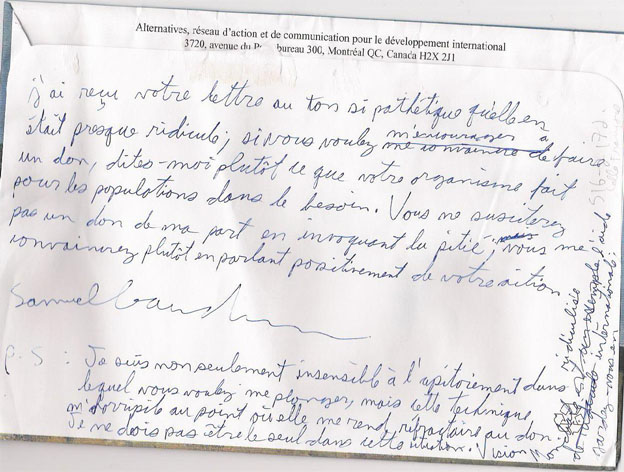 Alternatives, réseau d'action et de communication pour le développement international
3720, avenue du bureau 300, Montréal QC, Canada H2X 2J1
j'ai reçu votre lettre au ton si pathétique qu'elle en
était presque ridicule; si vous voulez m'encourager à
me convaincre de faire
un don, dites-moi plutôt ce que votre organisme fait
pour les populations dans le besoin. Vous ne susciterez
pas un don de ma part en invoquant la pitié; vous me
convaincrez plutôt en parlant positivement de votre action
Samuel
P.S : Je suis non seulement insensible à l'apitoiement dans
lequel vous voulez me plonger, mais cette technique
m'horripile au point où elle me rend réfractaire au don.
Je ne dois pas être le seul dans cette situation. Vision
idéaliste
par exemple l'aide
internationale;
gardez-vous en